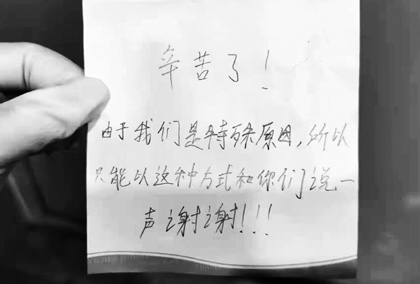 辛苦了!
由于我们是特殊原因,所以
只能以这种方式和你们说一
声谢谢!!!